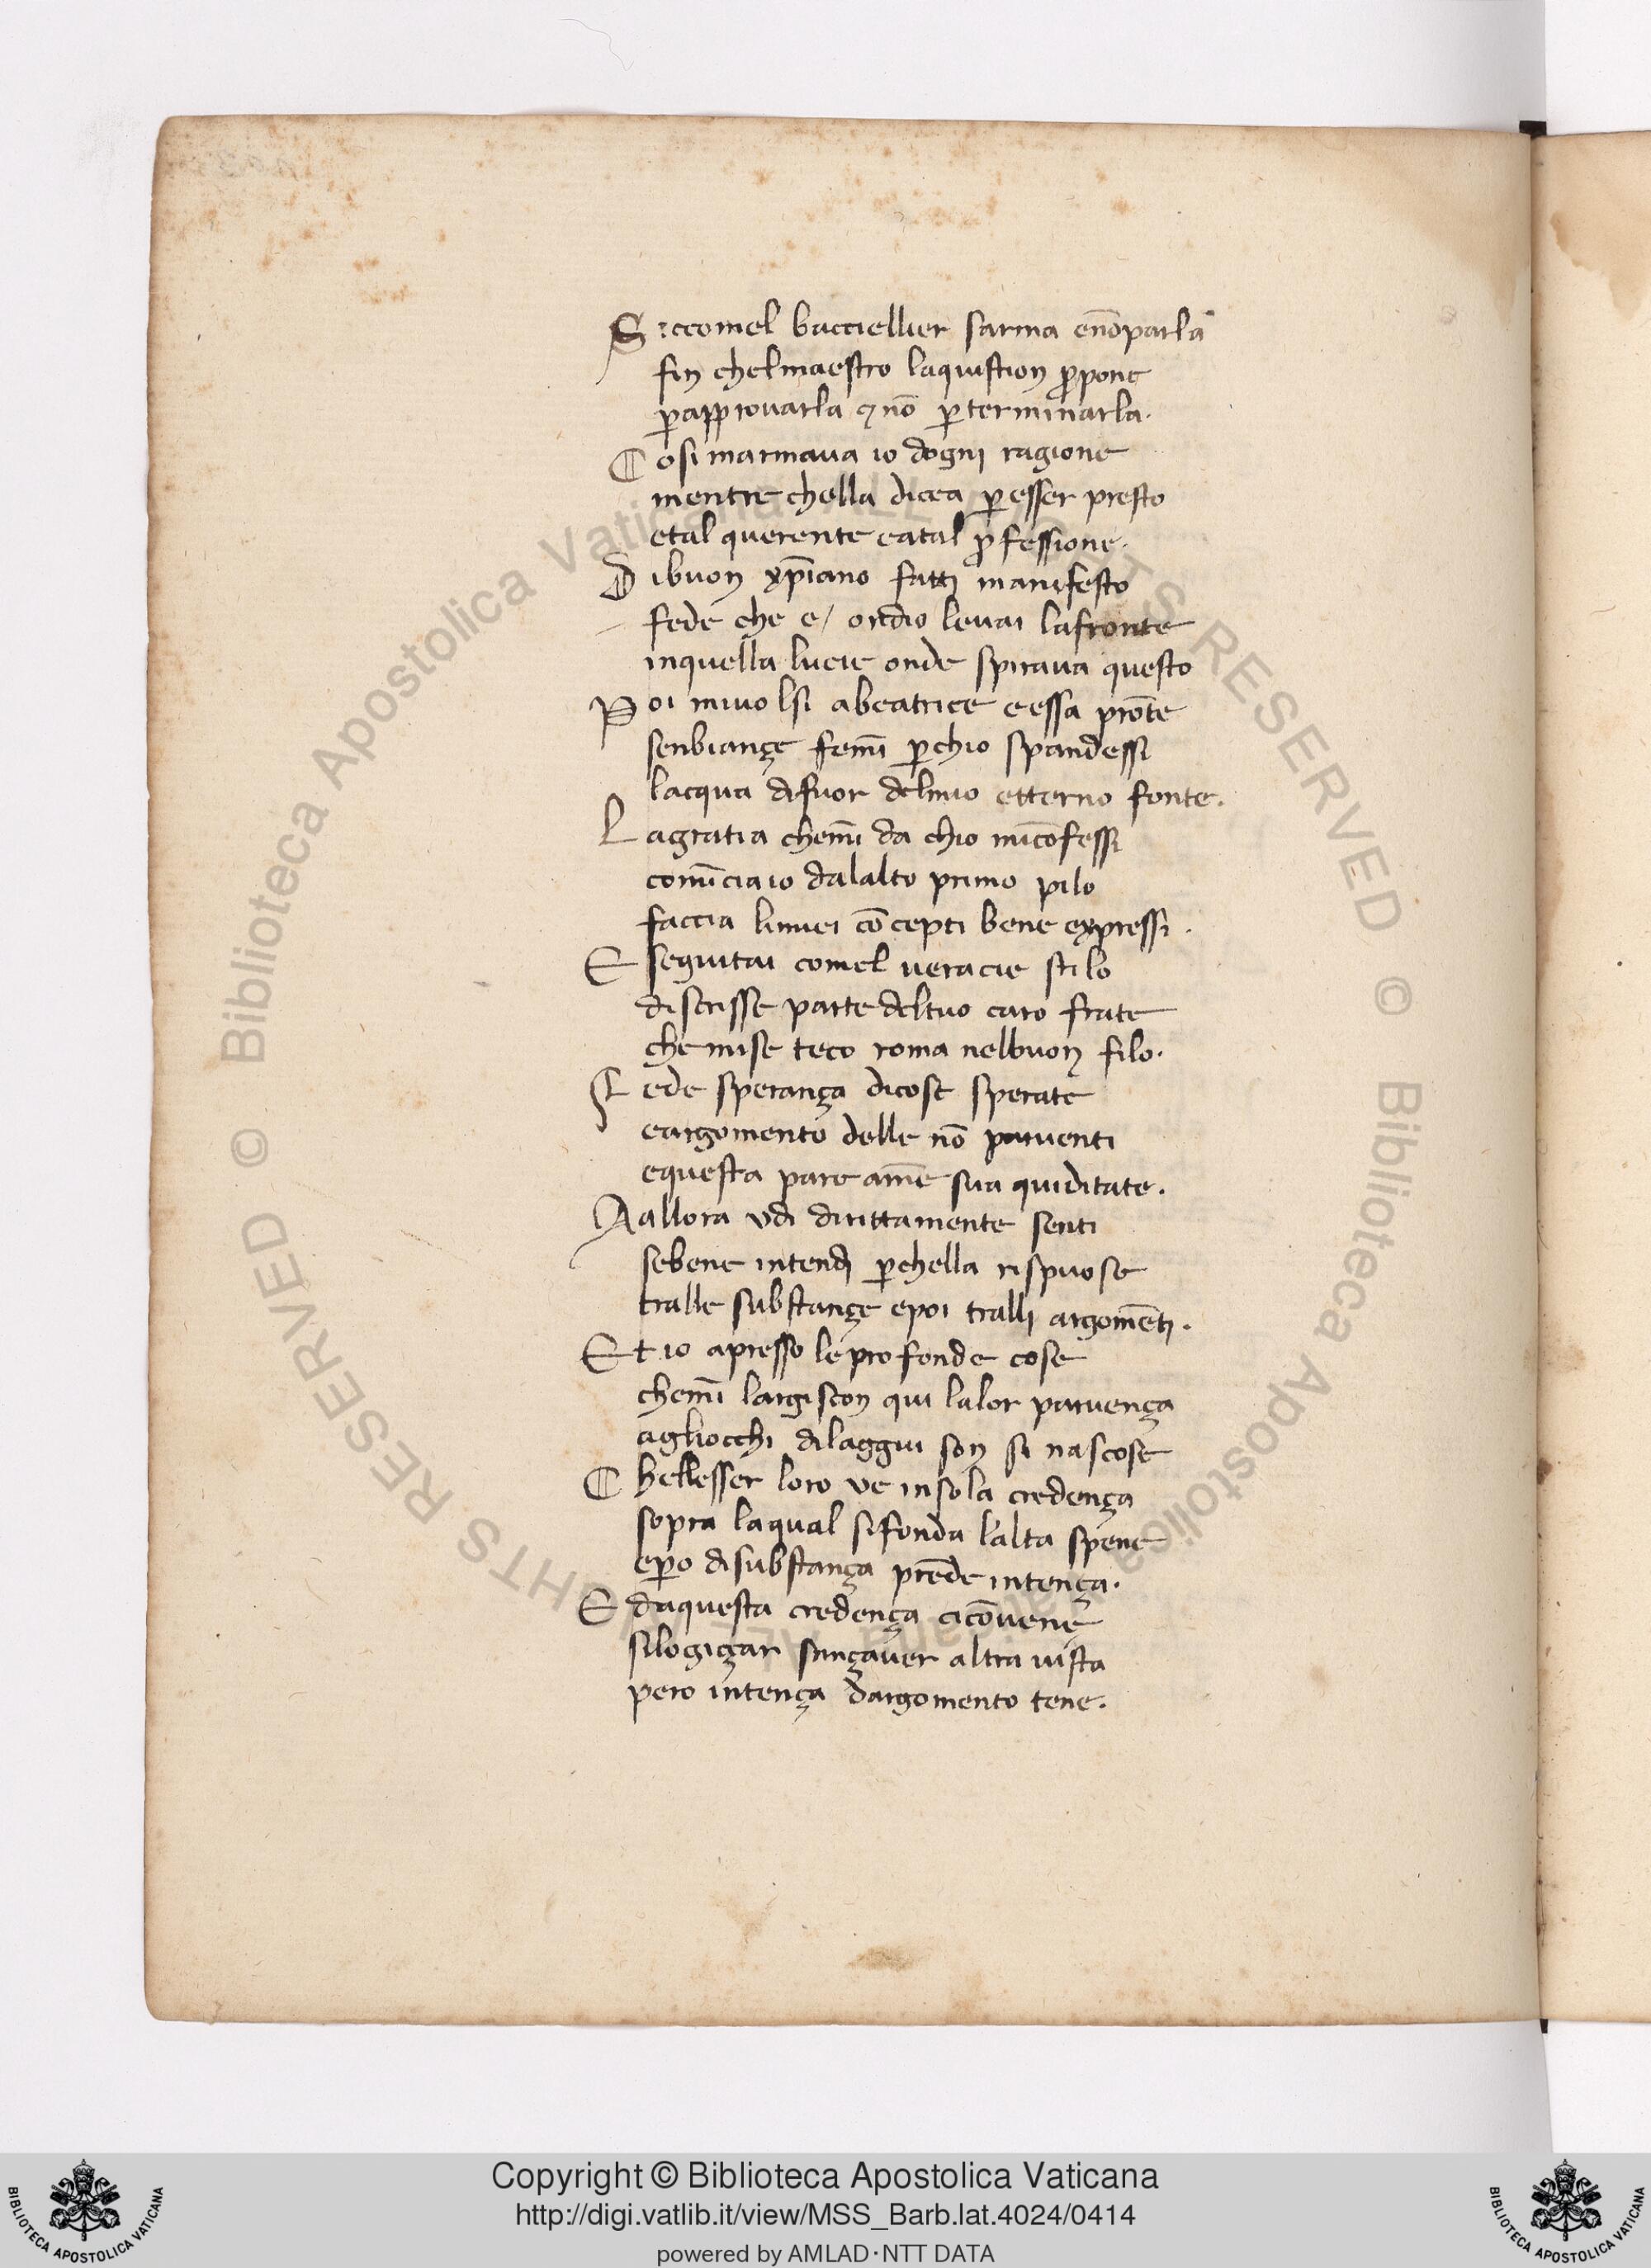 Siccomel bacciellier sarma enō parla
fin chel maestro laquistion ꝓpone
ꝑapprouarla ⁊ nō ꝑterminarla.
Cosi marmaua io dogni ragione
mentre chella dicea ꝑesser presto
etal querente eatal ꝓfessione.
Dibuon xp̄iano fatti manifesto
fede che e/ ondio leuai lafronte
inquella lucie onde spiraua questo
Poi miuolsi abeatrice eessa prōte
senbiançe femī ꝑchio spandessi
lacqua difuor delmio etterno fonte.
Lagratia chemī da chio micōfessi
comīciaio dalalto primo pilo
faccia limiei cōcepti bene expressi.
E seguitai comel ueracie stilo
discrisse parte deltuo caro frate
chemise teco roma nelbuon filo.
Fede sperança dicose sperate
eargomento delle nō paruenti
equesta pare amē sua quiditate.
Aallora vdi dirittamente senti
sebene intendi ꝑchella rispuose
tralle substançe epoi tralli argomēti.
Et io apresso le profonde cose
chemī largiscon qui lalor paruença
agliocchi dilaggiu son si nascose
Chellesser loro ve insola credença
sopra laqual sifonda lalta spene
eꝑo disubstança prēde intença.
E daquesta credença cicōuene
silogiçar sançauer altra uista
pero intença dargomento tene.
Copyright © Biblioteca Apostolica Vaticana
http://digi.vatlib.it/view/MSS_Barb.lat.4024/0414
powered by AMLAD·NTT DATA
BIBLIOTECA APOSTOLICA VATICANA
BIBLIOTECA APOSTOLICA VATICANA
© Biblioteca Apostolica Vaticana ALL RIGHTS RESERVED
© Biblioteca Apostolica Vaticana ALL RIGHTS RESERVED